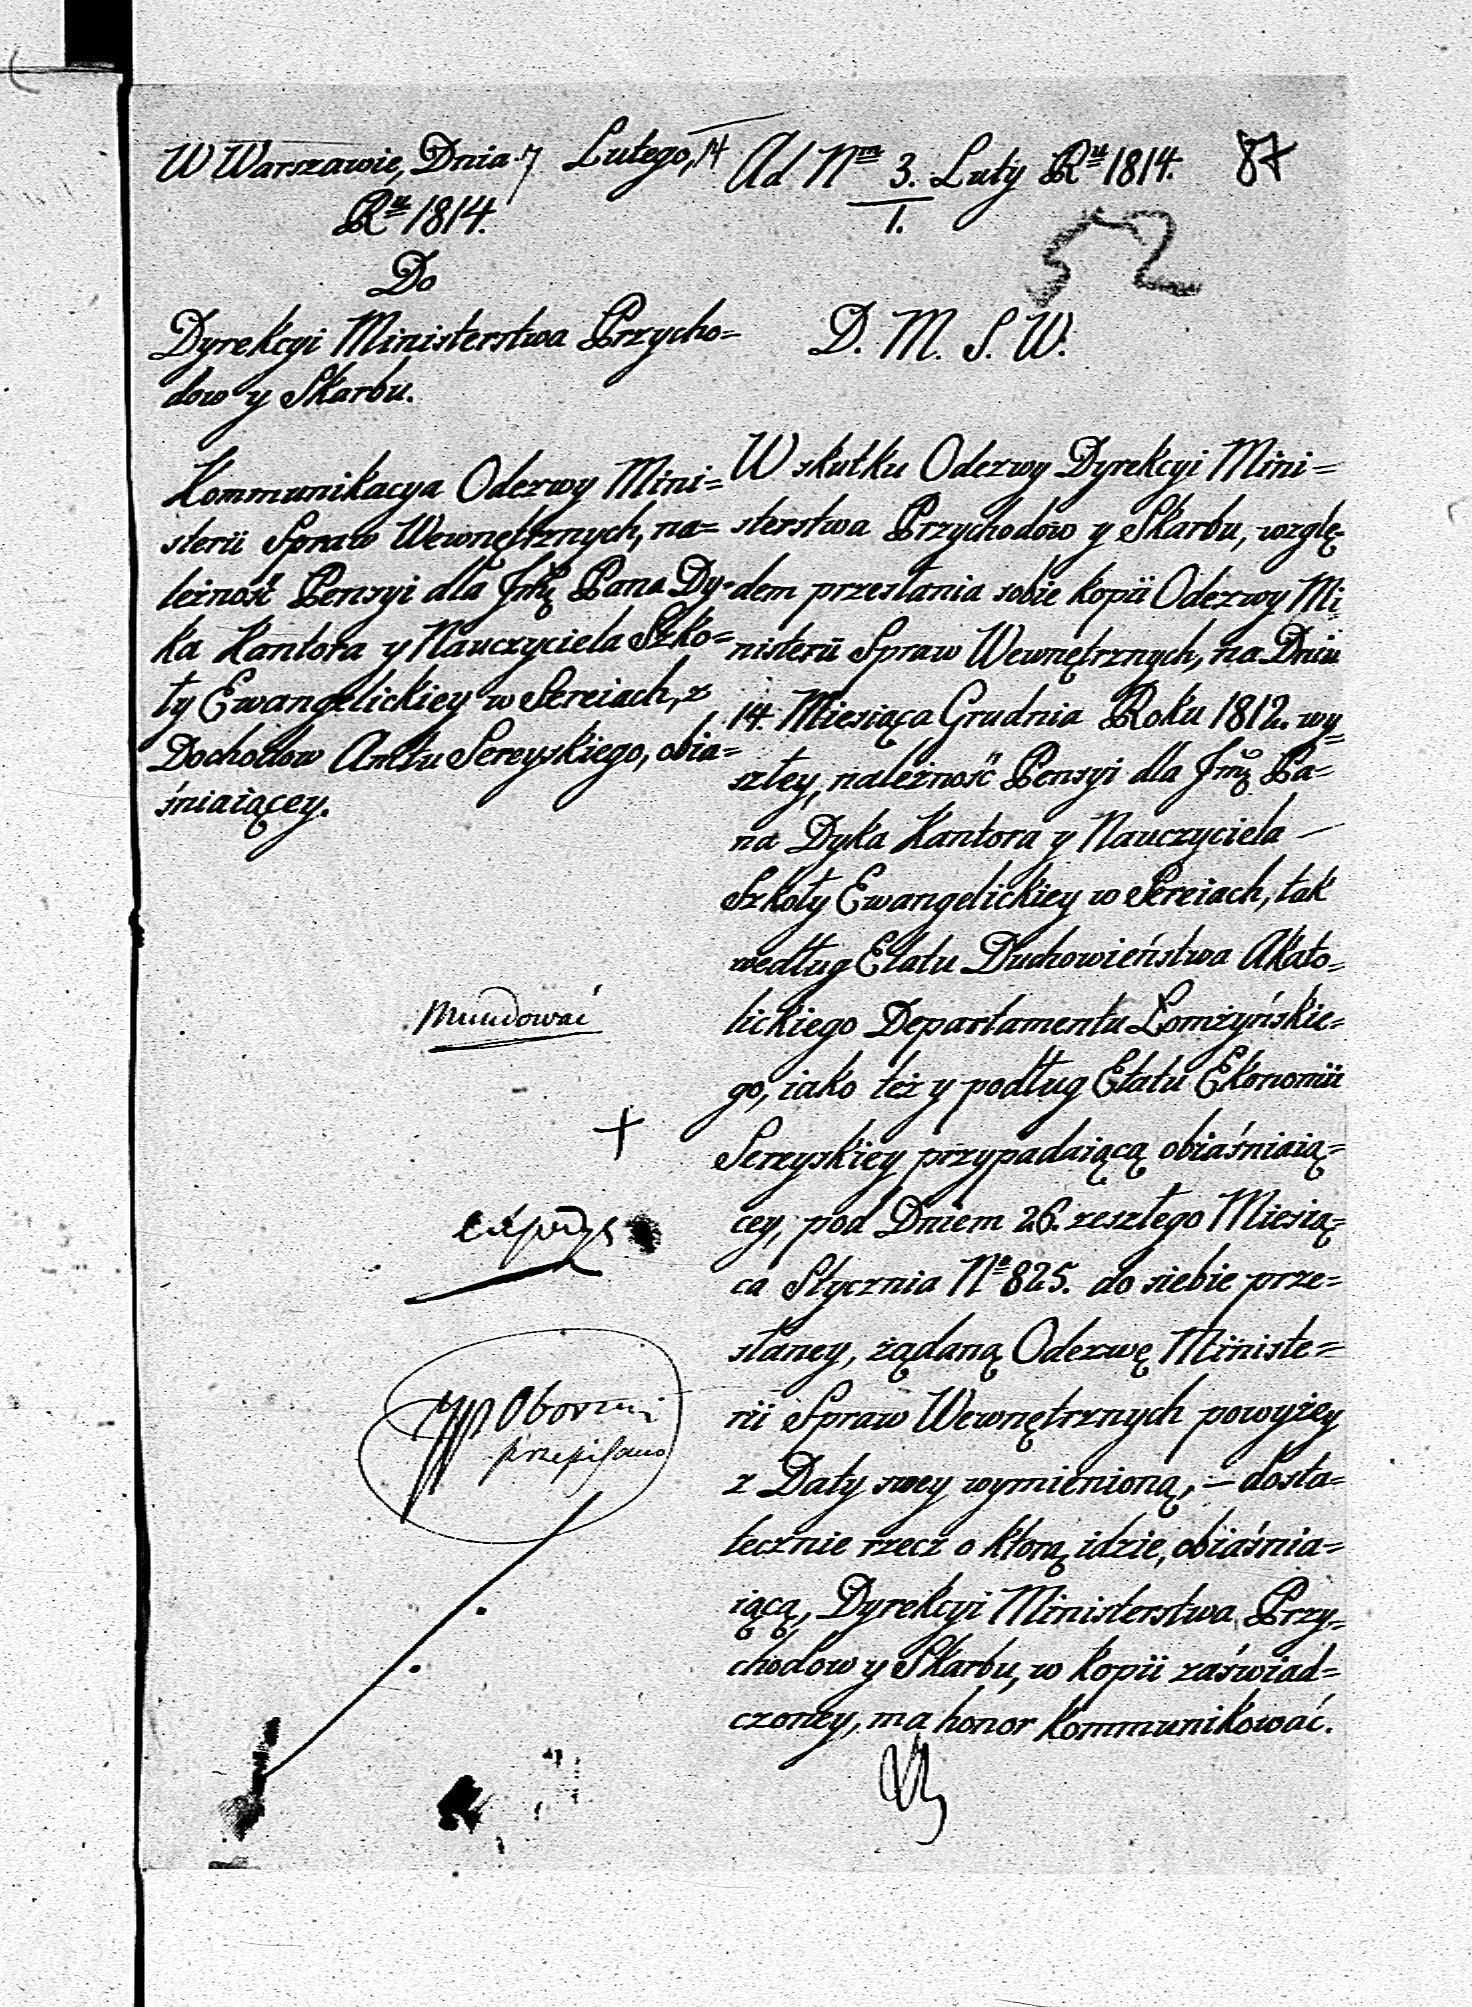 W Warszawie, Dnia 7 Lutego, 14
Rᵘ 1814.
Do
Dyrekcyi Ministerstwa Przycho=
dow y Skarbu.
Kommunikacya Odezwy Mini=
sterii Spraw Wewnętrznych, na=
leżność Pensyi dla Jmć Pana Dy=
ka Kantora y Nauczyciela Szko=
ły Ewangelickiey w Sereiach, z
Dochodow Amtu Sereyskiego, obia=
śniaiącey.
Mundować
+
exped
Oborski
przepisano
Ad Nᵐ 3. Luty Rᵘ 1814.
1.
87
52
D. M. S. W.
W skutku Odezwy Dyrekcyi Mini=
sterstwa Przychodów y Skarbu, wzglę=
dem przesłania sobie kopii Odezwy Mi=
nisterii Spraw Wewnętrznych, na Dniu
14. Miesiąca Grudnia Roku 1812. wy=
szłey, należność Pensyi dla Jmć Pa=
na Dyka Kantora y Nauczyciela —
Szkoły Ewangelickiey w Sereiach, tak
według Etatu Duchowieństwa Akato=
lickiego Departamentu Łomżyńskie=
go, iako też y podług Etatu Ekonomii
Sereyskiey przypadaiącą obiaśniaią=
cey, pod Dniem 26. zeszłego Miesią=
ca Stycznia Nº 825. do siebie prze=
słaney, żądaną Odezwę Ministe=
rii Spraw Wewnętrznych powyżey
z Daty swey wymienioną, — dosta=
tecznie rzecz o którą idzie, obiaśnia=
iącą, Dyrekcyi Ministerstwa Przy=
chodow y Skarbu, w kopii zaświad=
czoney, ma honor kommunikować.